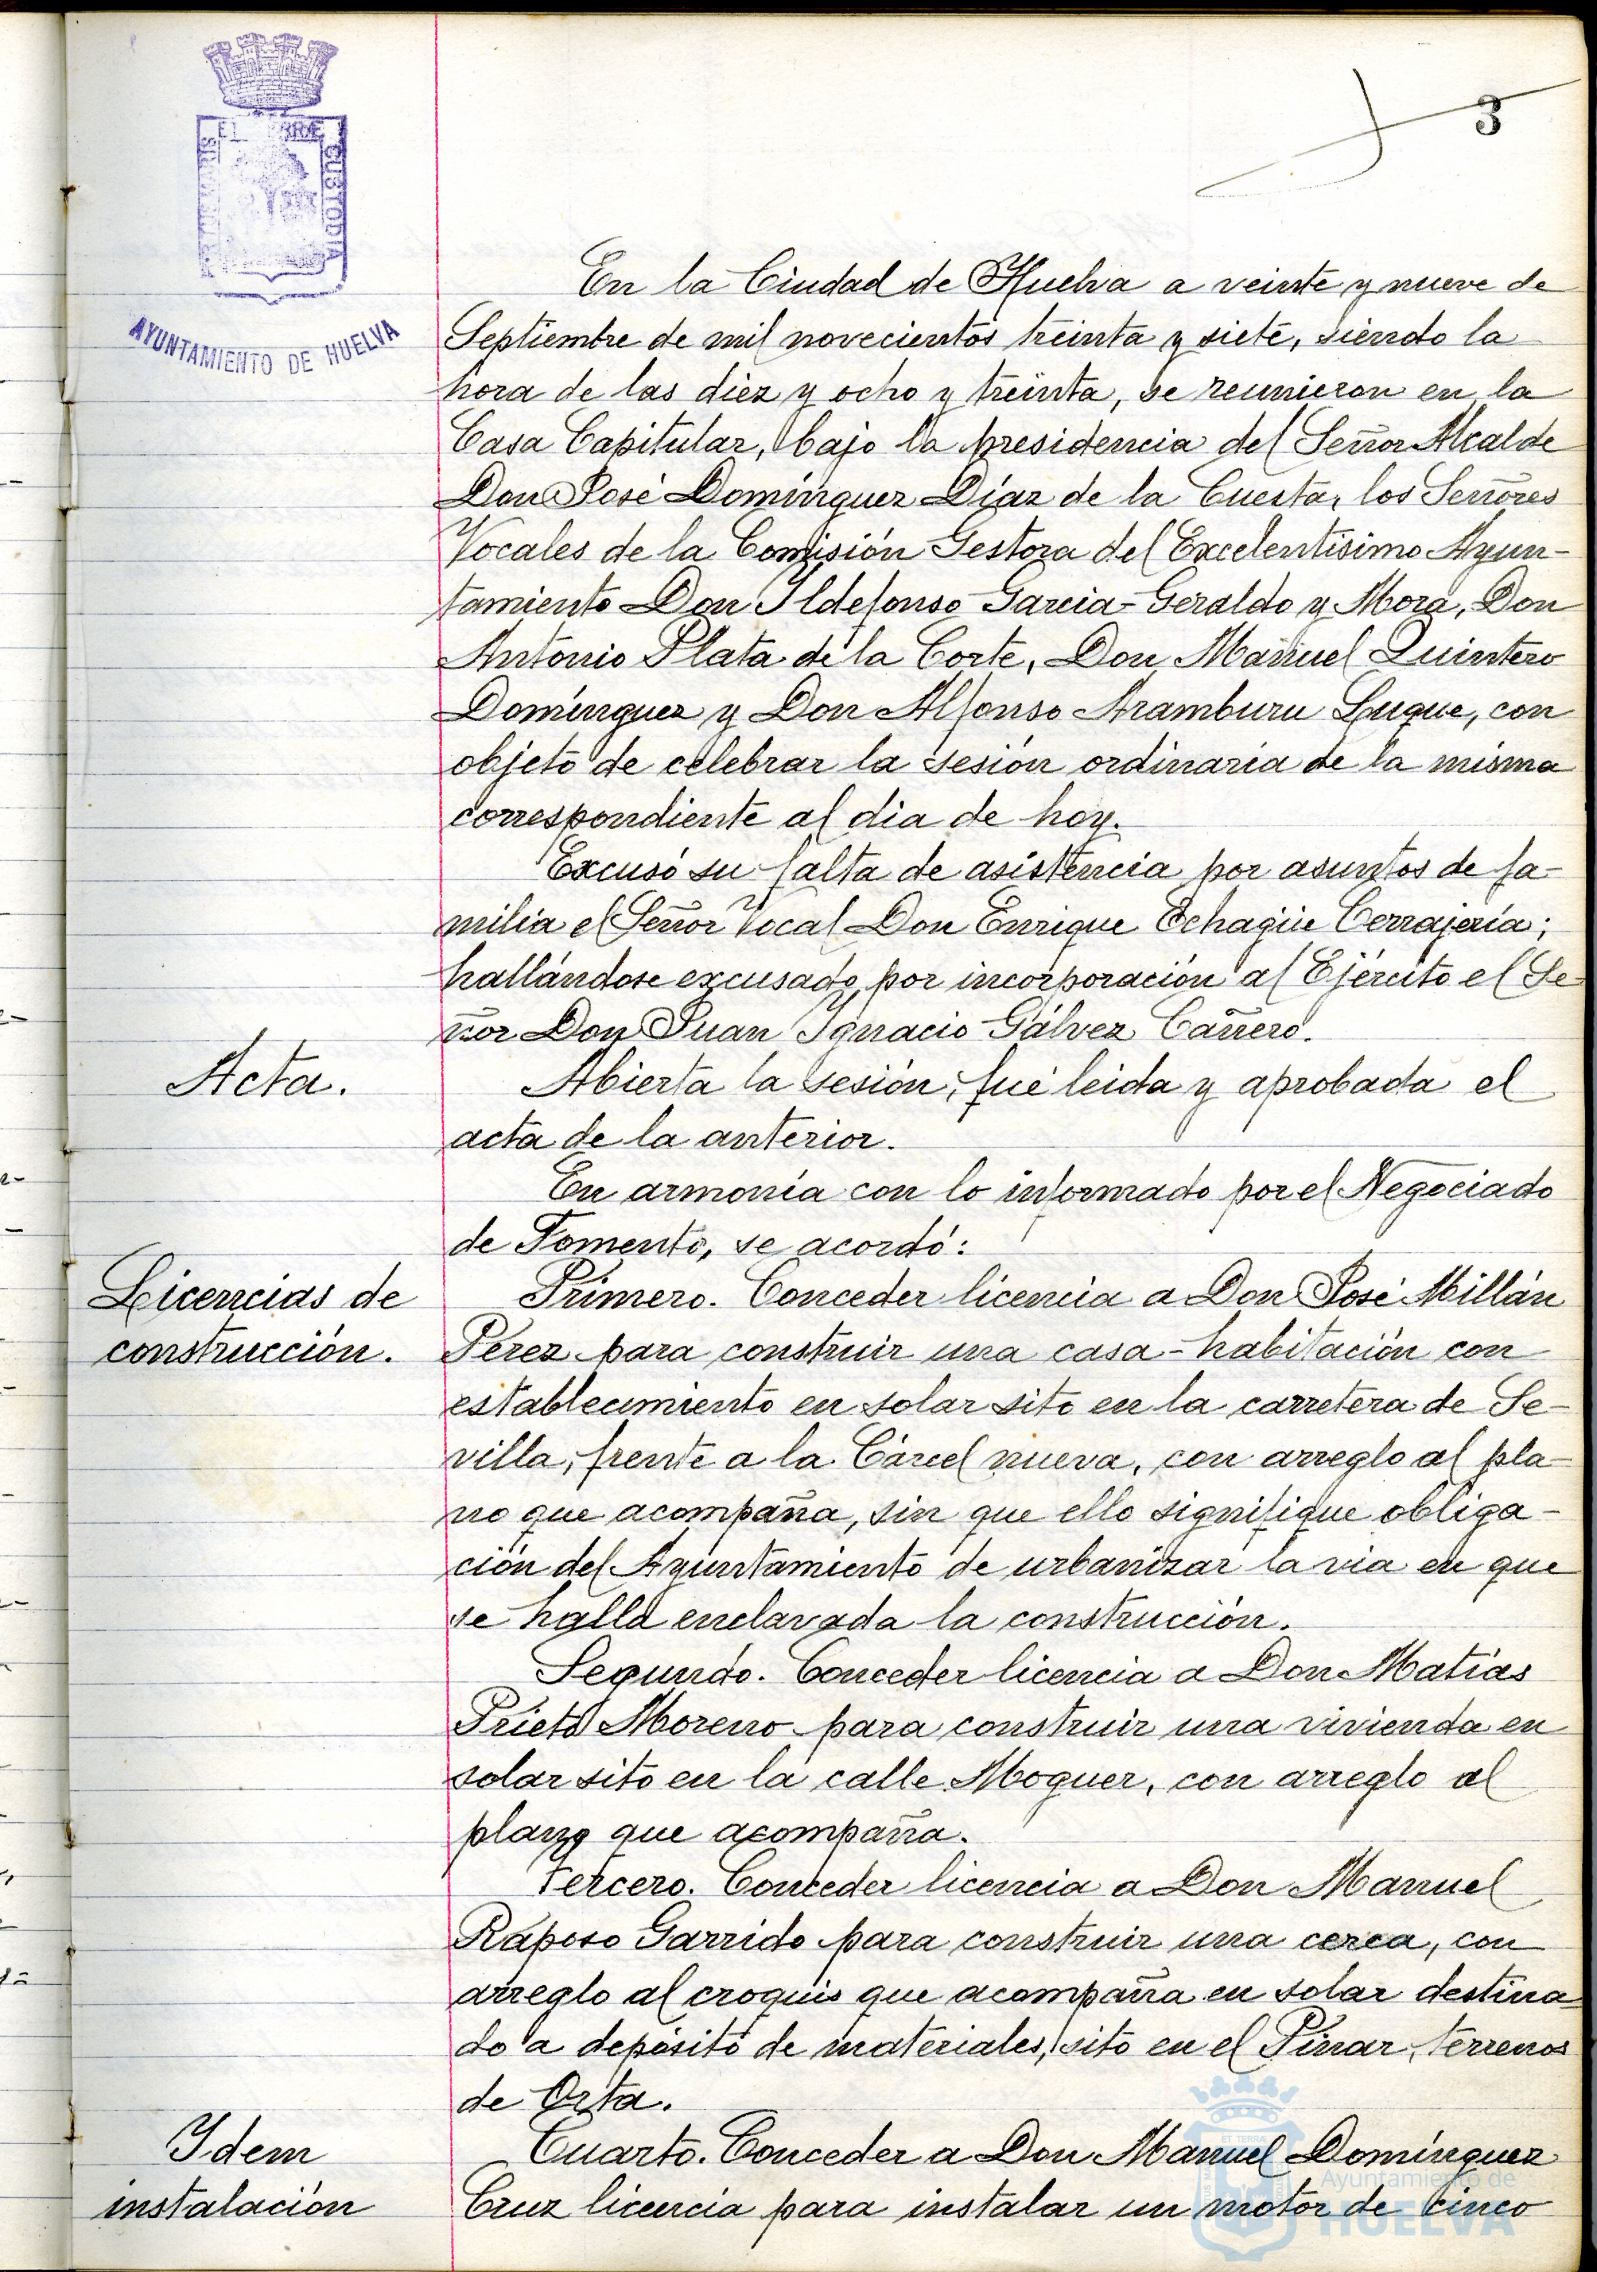 3
ET TERRÆ
PORTUS MARIS
CUSTODIA
AYUNTAMIENTO DE HUELVA
En la Ciudad de Huelva a veinte y nueve de
Septiembre de mil novecientos treinta y siete, siendo la
hora de las diez y ocho y treinta, se reunieron en la
Casa Capitular, bajo la presidencia del Señor Alcalde
Don José Domínguez Díaz de la Cuesta, los Señores
Vocales de la Comisión Gestora del Excelentísimo Ayun-
tamiento Don Ildefonso Garcia-Geraldo y Mora, Don
Antonio Plata de la Corte, Don Manuel Quintero
Domínguez y Don Alfonso Aramburu Luque, con
objeto de celebrar la sesión ordinaria de la misma
correspondiente al dia de hoy.
Excusó su falta de asistencia por asuntos de fa-
milia el Señor Vocal Don Enrique Echagüe Cerrajería;
hallándose excusado por incorporación al Ejército el Se-
ñor Don Juan Ignacio Gálvez Cañero.
Acta.
Abierta la sesión, fué leida y aprobada el
acta de la anterior.
En armonía con lo informado por el Negociado
de Fomento, se acordó:
Licencias de
construcción.
Primero. Conceder licencia a Don José Millán
Pérez para construir una casa-habitación con
establecimiento en solar sito en la carretera de Se-
villa, frente a la Cárcel nueva, con arreglo al pla-
no que acompaña, sin que ello signifique obliga-
ción del Ayuntamiento de urbanizar la via en que
se halla enclavada la construcción.
Segundo. Conceder licencia a Don Matías
Prieto Moreno para construir una vivienda en
solar sito en la calle Moguer, con arreglo al
plano que acompaña.
Tercero. Conceder licencia a Don Manuel
Raposo Garrido para construir una cerca, con
arreglo al croquis que acompaña en solar destina
do a depósito de materiales, sito en el Pinar, terrenos
de Orta.
Idem
instalación
Cuarto. Conceder a Don Manuel Domínguez
Cruz licencia para instalar un motor de cinco
Ayuntamiento de
HUELVA